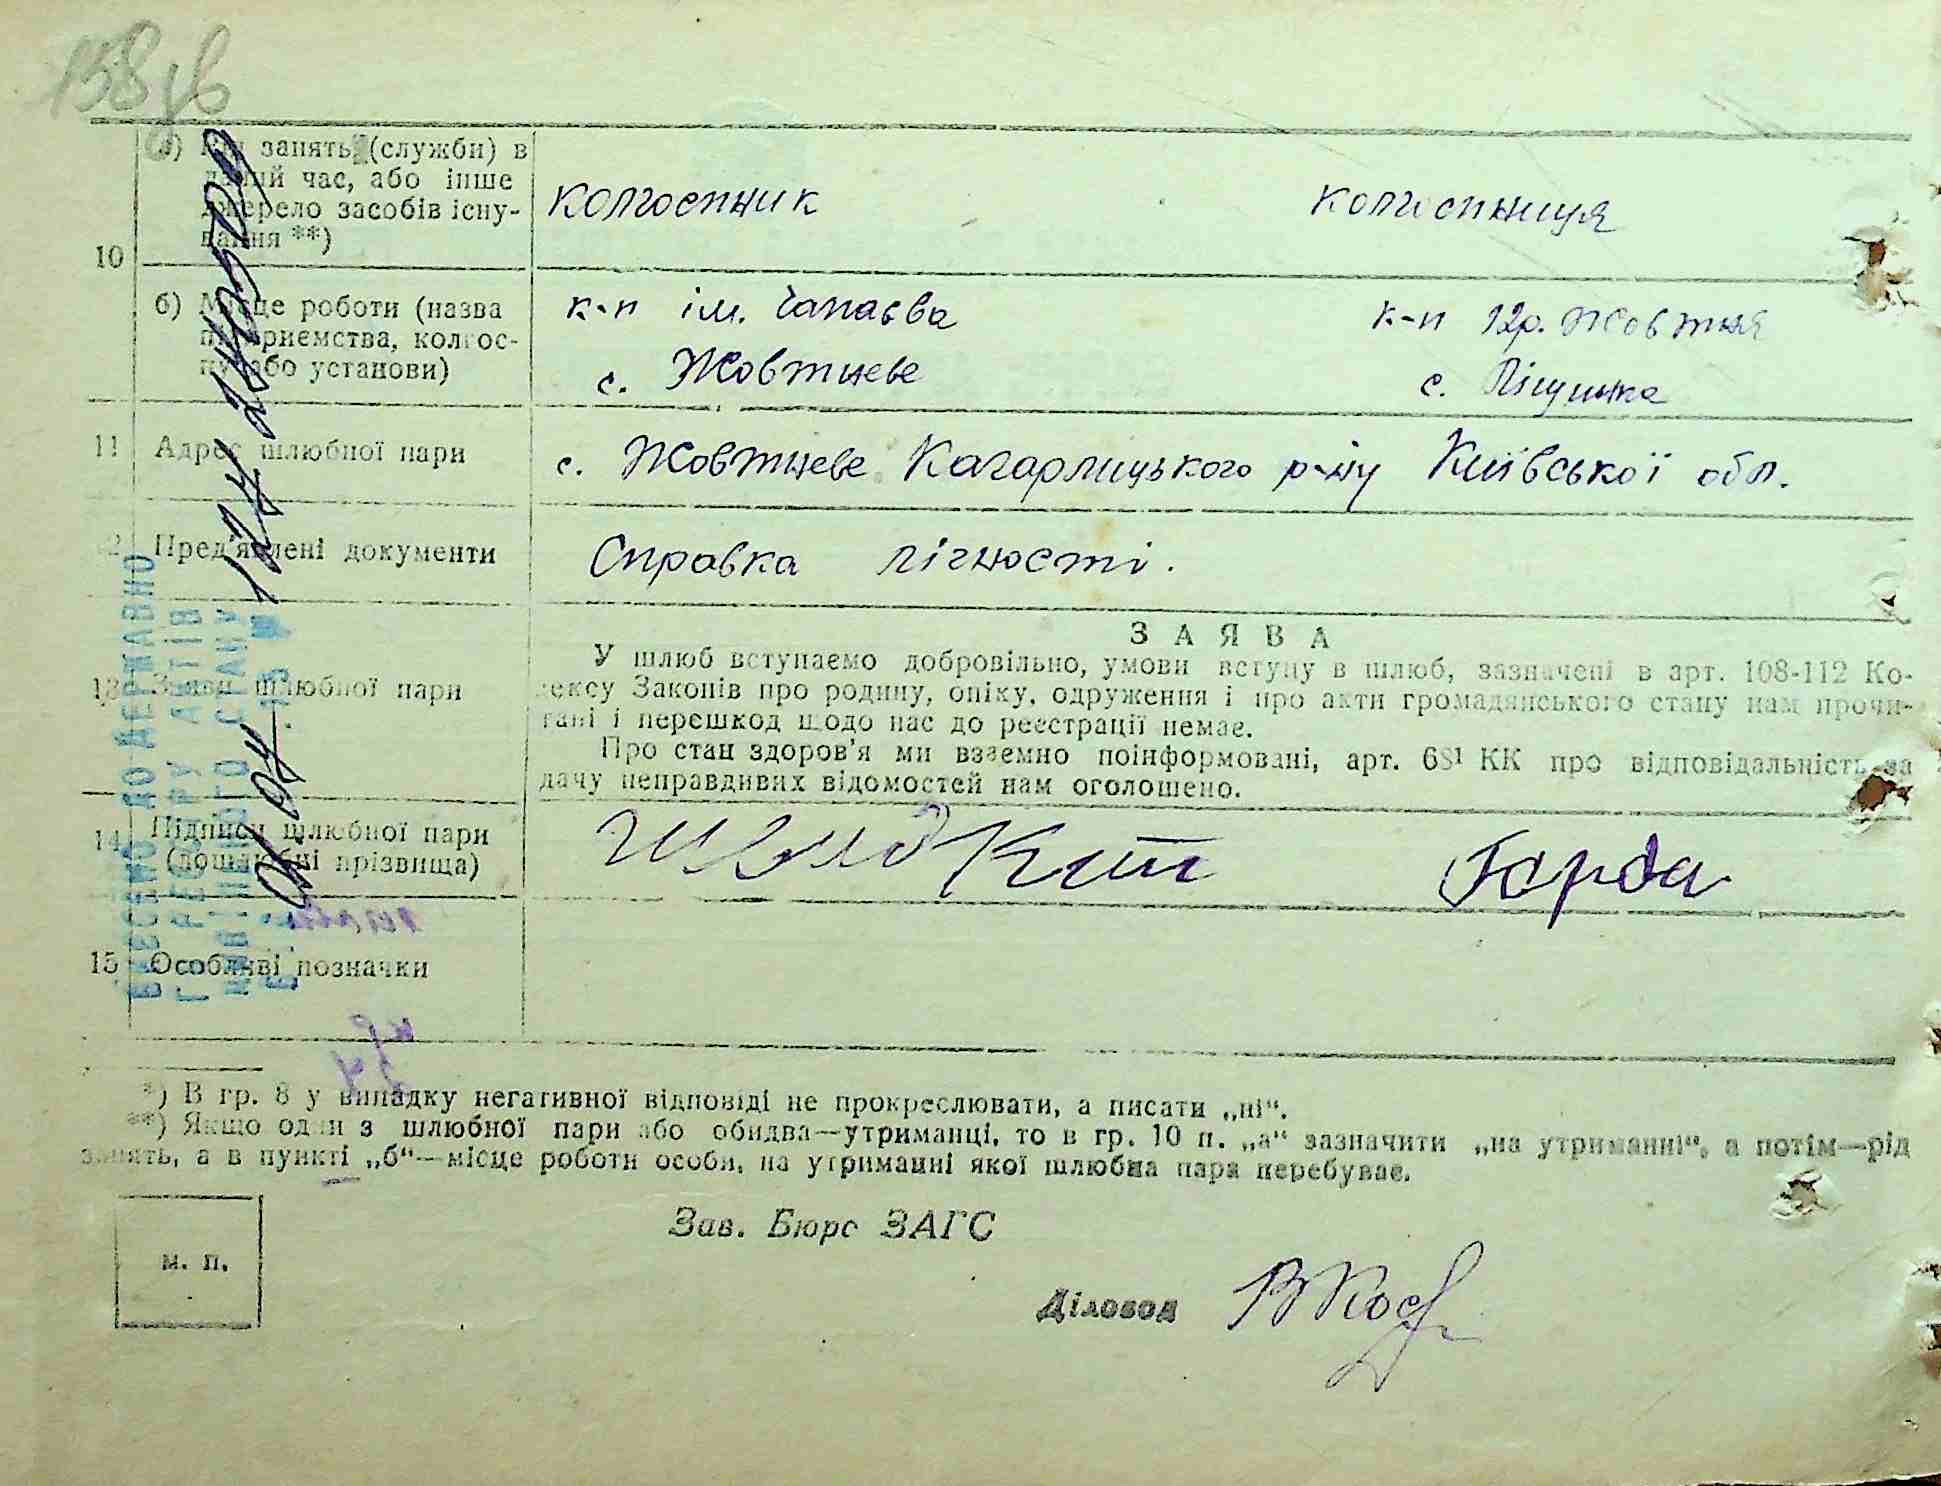 158 зв
а) Рід занять (служби) в
даний час, або інше
джерело засобів існу-
вання **)
колгоспник колгоспниця
10
б) Місце роботи (назва
підприємства, колгос-
пу або установи)
к-п ім. Чапаєва к-п 12р. Жовтня
с. Жовтневе с.
11 Адрес шлюбної пари с. Жовтневе Кагарлицького р-ну Київської обл.
12 Пред'явлені документи Справка лічності.
13 Заяви шлюбної пари
ЗАЯВА
У шлюб вступаємо добровільно, умови вступу в шлюб, зазначені в арт. 108-112 Ко-
дексу Законів про родину, опіку, одруження і про акти громадянського стану нам прочи-
тані і перешкод щодо нас до реєстрації немає.
Про стан здоров'я ми взаємно поінформовані, арт. 68¹ КК про відповідальність за
дачу неправдивих відомостей нам оголошено.
14 Підписи шлюбної пари
(дошлюбні прізвища)
15 Особливі позначки
ВНЕСЕНО ДО ДЕРЖАВНО
ГО РЕЄСТРУ АКТІВ
ЦИВІЛЬНОГО СТАНУ
*) В гр. 8 у випадку негативної відповіді не прокреслювати, а писати „ні“.
**) Якщо один з шлюбної пари або обидва—утриманці, то в гр. 10 п. „а“ зазначити „на утриманні“, а потім—рід
занять, а в пункті „б“—місце роботи особи, на утриманні якої шлюбна пара перебуває.
Зав. Бюро ЗАГС
м. п.
Діловод